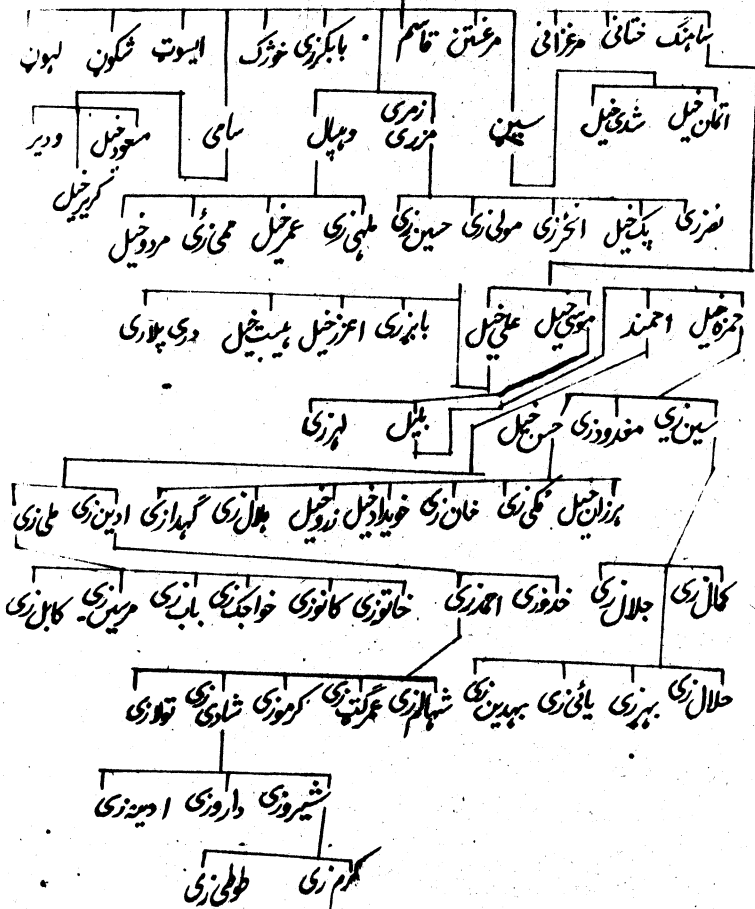 ساہنگ ختانی مرغزانی مرغستن قاسم بابکرزی خوزک ایسوٹ شکون لہون
اتمان خیل شدی خیل سین زمری مزری وہپال سامی مسعود خیل ودیر
کریر خیل
نصرزی پک خیل انخرزی مولی زی حسین زی ملہی زی عمر خیل ممی زئی مردو خیل
حمزہ خیل احمند موسیٰ خیل علی خیل بابرزی اعزز خیل ہیبت خیل دری پلاری
سین زی مغدودزی حسن خیل بلیل لہرزی
ہرزان خیل نمکی زی خان زی خویداد خیل زرو خیل ہلال زی گہدازی ادین زی ملی زی
کمال زی جلال زی خدوزی احمدزی خاتوزی کانوزی خواجک زی باب زی مرسین زی کابل زی
حلال زی بہرزی پائی زی بہدین زی شہالم زی عمرگٹ زی کرموزی شادی زی تولازی
شیروزی داروزی ادینہ زی
کرم زی طوطی زی